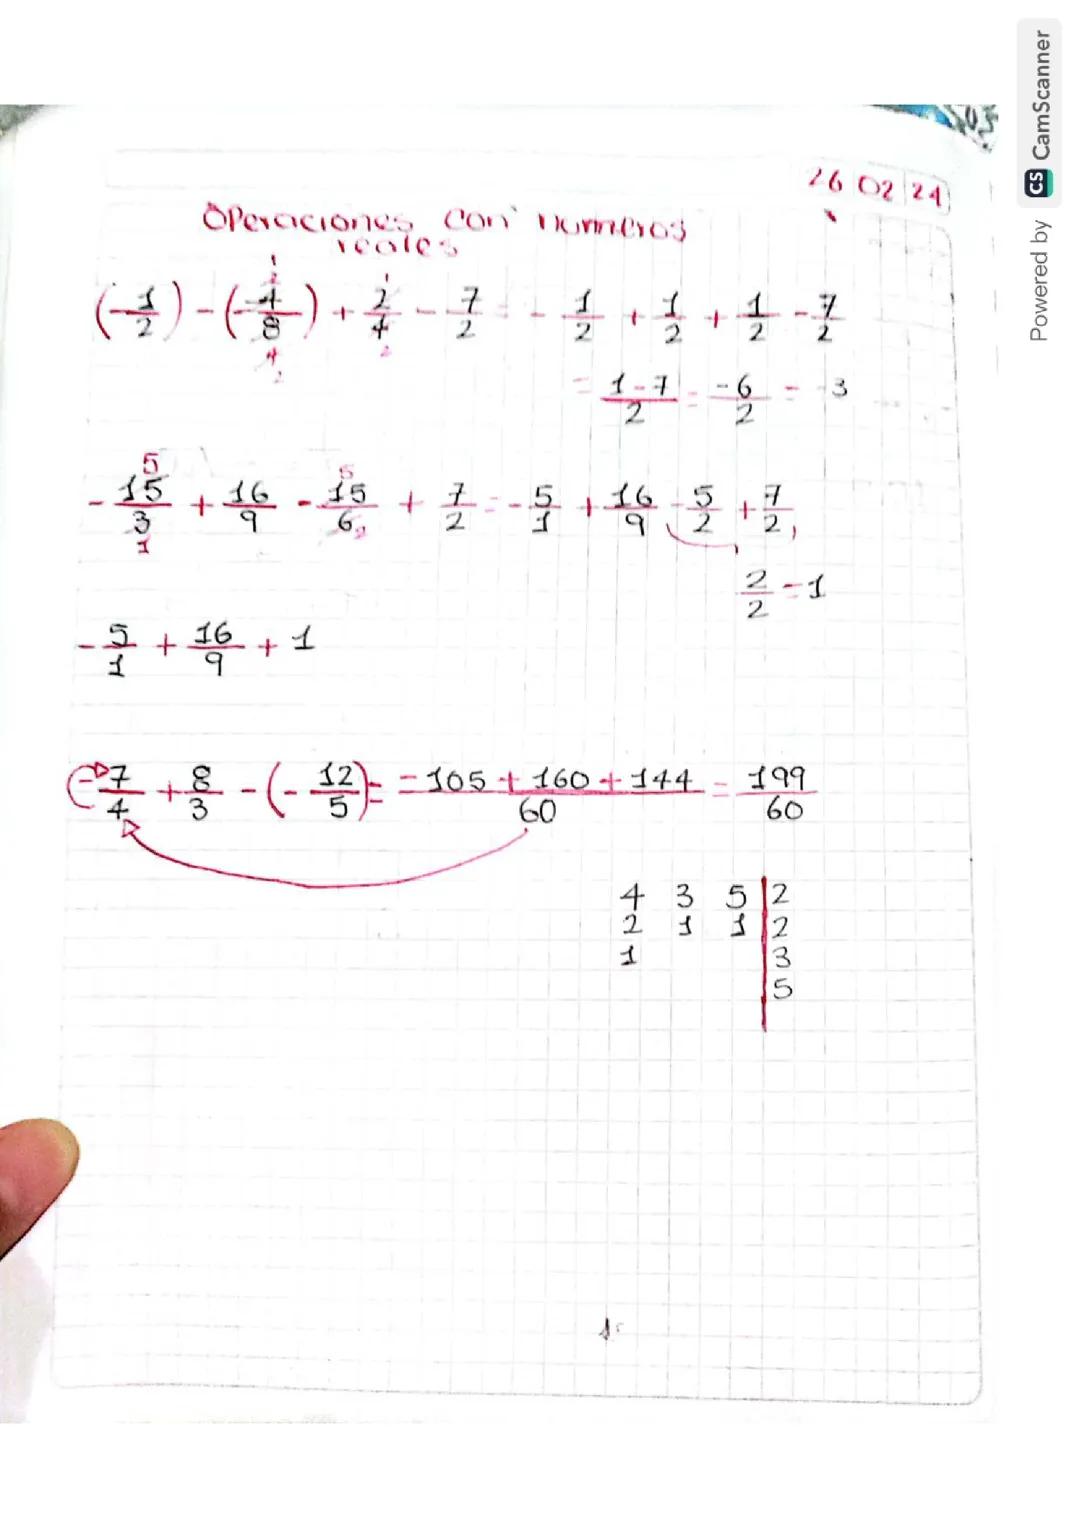 26 02 24
Operaciones con numeros
reales
(-1/2) - (-4/8) + 2/4 - 7/2 = -1/2 + 1/2 + 1/2 - 7/2
= 1-7/2 = -6/2 = -3
-15/3 + 16/9 - 15/6 + 7/2 = -5/1 + 16/9 - 5/2 + 7/2
2/2 = 1
-5/1 + 16/9 + 1
(-7/4 + 8/3 - (-12/5) = -105 + 160 + 144/60 = 199/60
4 3 5 | 2
2 1 1 | 2
1 | 3
5
Powered by CS CamScanner